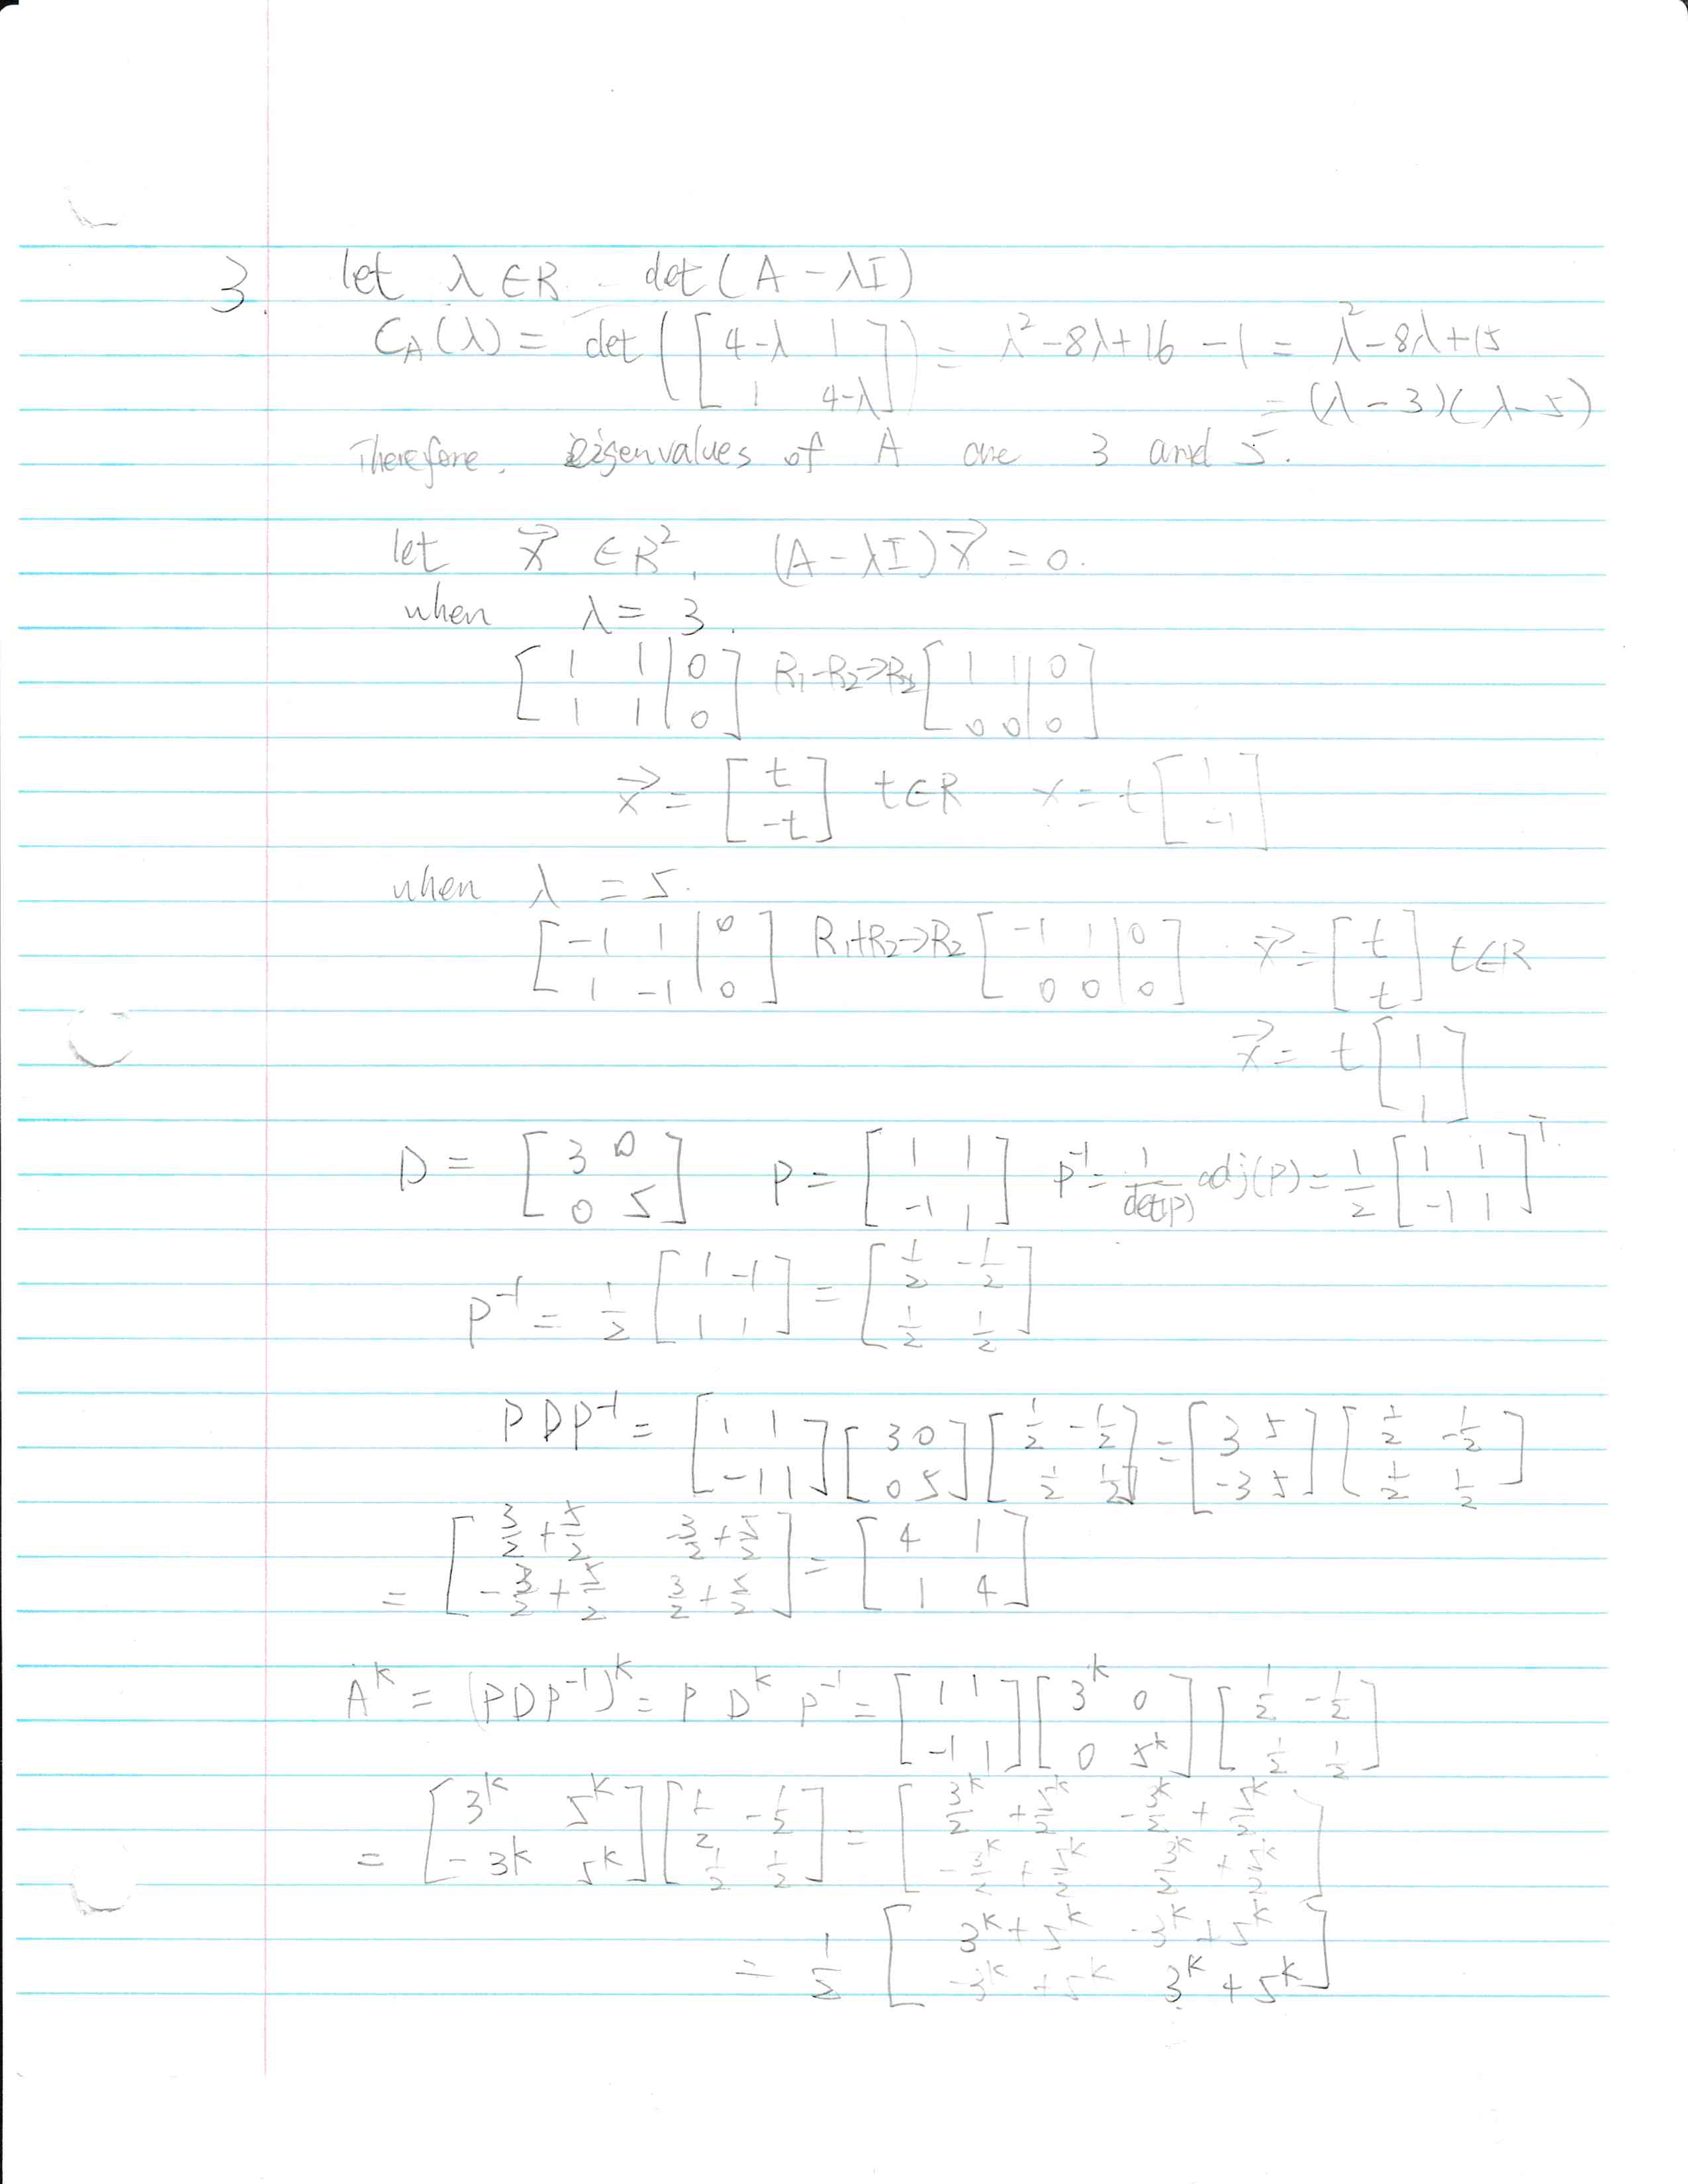 3. let λ ∈ R. det(A - λI)
C_A(λ) = det([4-λ 1; 1 4-λ]) = λ² - 8λ + 16 - 1 = λ² - 8λ + 15
= (λ - 3)(λ - 5)
Therefore, eigenvalues of A are 3 and 5.
let x⃗ ∈ R², (A - λI)x⃗ = 0.
when λ = 3.
[1 1 | 0; 1 1 | 0] R₁-R₂→R₂ [1 1 | 0; 0 0 | 0]
x⃗ = [t; -t] t∈R x = t[1; -1]
when λ = 5.
[-1 1 | 0; 1 -1 | 0] R₁+R₂→R₂ [-1 1 | 0; 0 0 | 0] x⃗ = [t; t] t∈R
x⃗ = t[1; 1]
D = [3 0; 0 5] P = [1 1; -1 1] P⁻¹ = 1/det(P) adj(P) = 1/2 [1 1; -1 1]ᵀ.
P⁻¹ = 1/2 [1 -1; 1 1] = [1/2 -1/2; 1/2 1/2]
PDP⁻¹ = [1 1; -1 1][3 0; 0 5][1/2 -1/2; 1/2 1/2] = [3 5; -3 5][1/2 -1/2; 1/2 1/2]
= [3/2 + 5/2 -3/2 + 5/2; -3/2 + 5/2 3/2 + 5/2] = [4 1; 1 4]
Aᵏ = (PDP⁻¹)ᵏ = P Dᵏ P⁻¹ = [1 1; -1 1][3ᵏ 0; 0 5ᵏ][1/2 -1/2; 1/2 1/2]
= [3ᵏ 5ᵏ; -3ᵏ 5ᵏ][1/2 -1/2; 1/2 1/2] = [3ᵏ/2 + 5ᵏ/2 -3ᵏ/2 + 5ᵏ/2; -3ᵏ/2 + 5ᵏ/2 3ᵏ/2 + 5ᵏ/2]
= 1/2 [3ᵏ + 5ᵏ -3ᵏ + 5ᵏ; -3ᵏ + 5ᵏ 3ᵏ + 5ᵏ]